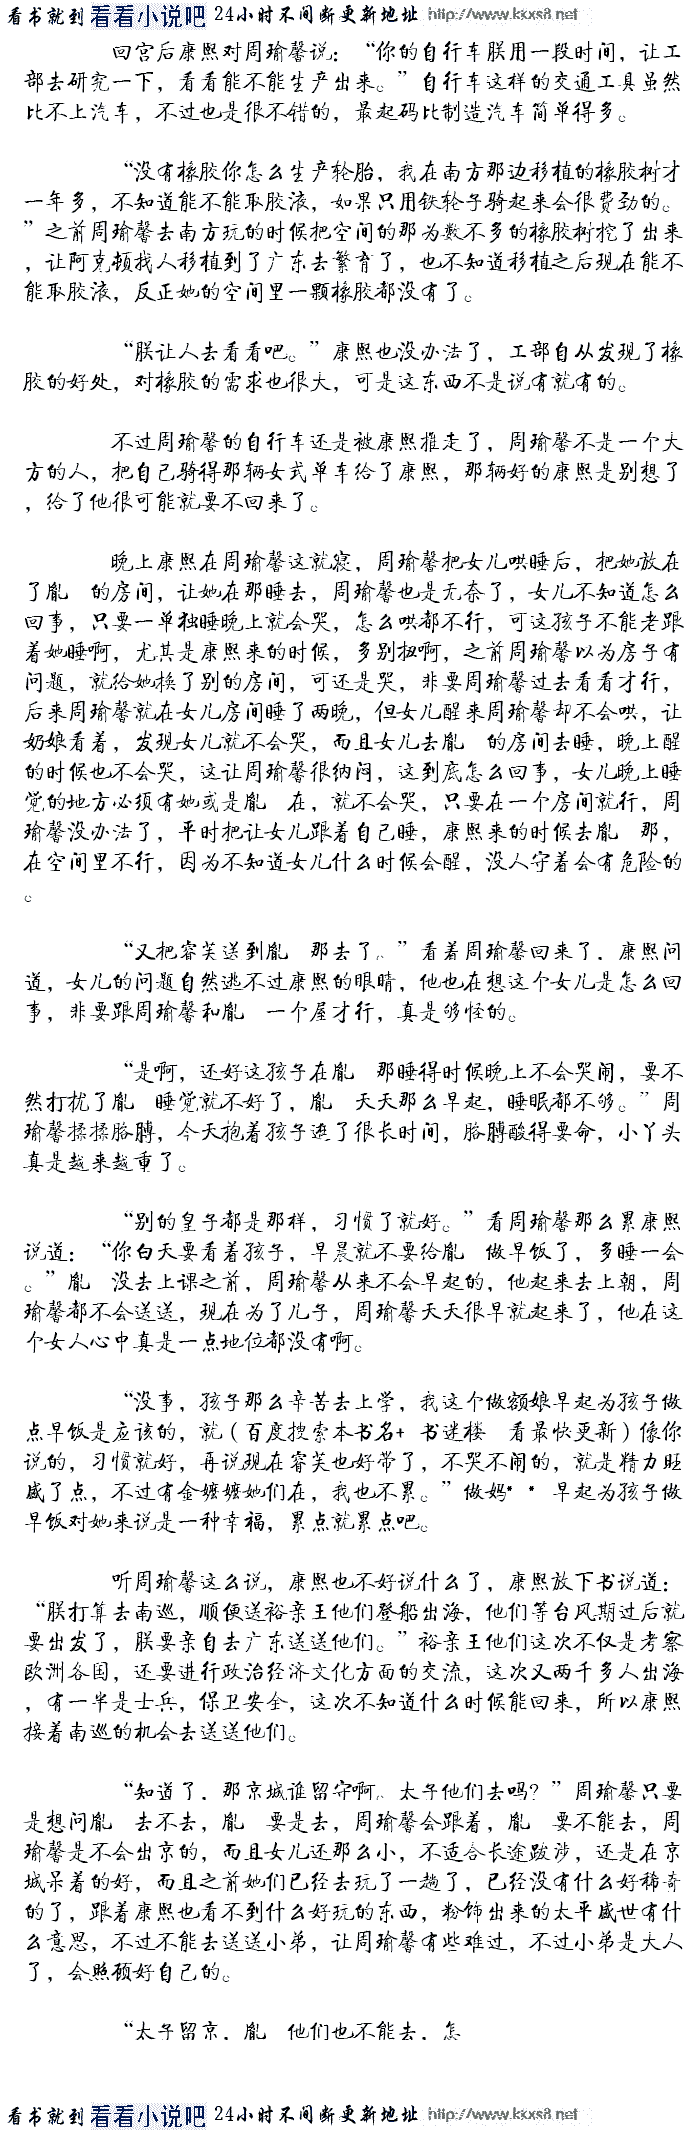 看书就到 看看小说吧 24小时不间断更新地址 http://www.kkxs8.net
回宫后康熙对周瑜馨说：“你的自行车朕用一段时间，让工
部去研究一下，看看能不能生产出来。”自行车这样的交通工具虽然
比不上汽车，不过也是很不错的，最起码比制造汽车简单得多。
“没有橡胶你怎么生产轮胎，我在南方那边移植的橡胶树才
一年多，不知道能不能取胶液，如果只用铁轮子骑起来会很费劲的。
”之前周瑜馨去南方玩的时候把空间的那为数不多的橡胶树挖了出来
，让阿克顿找人移植到了广东去繁育了，也不知道移植之后现在能不
能取胶液，反正她的空间里一颗橡胶都没有了。
“朕让人去看看吧。”康熙也没办法了，工部自从发现了橡
胶的好处，对橡胶的需求也很大，可是这东西不是说有就有的。
不过周瑜馨的自行车还是被康熙推走了，周瑜馨不是一个大
方的人，把自己骑得那辆女式单车给了康熙，那辆好的康熙是别想了
，给了他很可能就要不回来了。
晚上康熙在周瑜馨这就寝，周瑜馨把女儿哄睡后，把她放在
了胤 的房间，让她在那睡去，周瑜馨也是无奈了，女儿不知道怎么
回事，只要一单独睡晚上就会哭，怎么哄都不行，可这孩子不能老跟
着她睡啊，尤其是康熙来的时候，多别扭啊，之前周瑜馨以为房子有
问题，就给她换了别的房间，可还是哭，非要周瑜馨过去看看才行，
后来周瑜馨就在女儿房间睡了两晚，但女儿醒来周瑜馨却不会哄，让
奶娘看着，发现女儿就不会哭，而且女儿去胤 的房间去睡，晚上醒
的时候也不会哭，这让周瑜馨很纳闷，这到底怎么回事，女儿晚上睡
觉的地方必须有她或是胤 在，就不会哭，只要在一个房间就行，周
瑜馨没办法了，平时把让女儿跟着自己睡，康熙来的时候去胤 那，
在空间里不行，因为不知道女儿什么时候会醒，没人守着会有危险的
。
“又把容芙送到胤 那去了。”看着周瑜馨回来了，康熙问
道，女儿的问题自然逃不过康熙的眼睛，他也在想这个女儿是怎么回
事，非要跟周瑜馨和胤 一个屋才行，真是够怪的。
“是啊，还好这孩子在胤 那睡得时候晚上不会哭闹，要不
然打扰了胤 睡觉就不好了，胤 天天那么早起，睡眠都不够。”周
瑜馨揉揉胳膊，今天抱着孩子逛了很长时间，胳膊酸得要命，小丫头
真是越来越重了。
“别的皇子都是那样，习惯了就好。”看周瑜馨那么累康熙
说道：“你白天要看着孩子，早晨就不要给胤 做早饭了，多睡一会
。”胤 没去上课之前，周瑜馨从来不会早起的，他起来去上朝，周
瑜馨都不会送送，现在为了儿子，周瑜馨天天很早就起来了，他在这
个女人心中真是一点地位都没有啊。
“没事，孩子那么辛苦去上学，我这个做额娘早起为孩子做
点早饭是应该的，就（百度搜索本书名+ 书迷楼 看最快更新）像你
说的，习惯就好，再说现在容芙也好带了，不哭不闹的，就是精力旺
盛了点，不过有金嬷嬷她们在，我也不累。”做妈* * 早起为孩子做
早饭对她来说是一种幸福，累点就累点吧。
听周瑜馨这么说，康熙也不好说什么了，康熙放下书说道：
“朕打算去南巡，顺便送裕亲王他们登船出海，他们等台风期过后就
要出发了，朕要亲自去广东送送他们。”裕亲王他们这次不仅是考察
欧洲各国，还要进行政治经济文化方面的交流，这次又两千多人出海
，有一半是士兵，保卫安全，这次不知道什么时候能回来，所以康熙
接着南巡的机会去送送他们。
“知道了，那京城谁留守啊。太子他们去吗？”周瑜馨只要
是想问胤 去不去，胤 要是去，周瑜馨会跟着，胤 要不能去，周
瑜馨是不会出京的，而且女儿还那么小，不适合长途跋涉，还是在京
城呆着的好，而且之前她们已经去玩了一趟了，已经没有什么好稀奇
的了，跟着康熙也看不到什么好玩的东西，粉饰出来的太平盛世有什
么意思，不过不能去送送小弟，让周瑜馨有些难过，不过小弟是大人
了，会照顾好自己的。
“太子留京，胤 他们也不能去，怎
看书就到 看看小说吧 24小时不间断更新地址 http://www.kkxs8.net